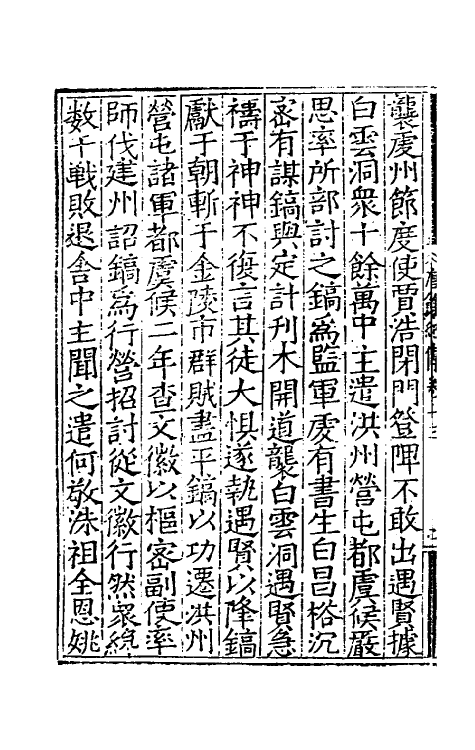 襲䖍州節度使賈浩閉門登陴不敢出遇賢據
白雲洞衆十餘萬中主遣洪州營屯都虞候嚴
思率所部討之鎬爲監軍䖍有書生白昌裕沉
宻有謀鎬與定計刋木開道襲白雲洞遇賢急
禱于神神不復言其徒大懼遂執遇賢以降鎬
獻于朝斬于金陵市群賊盡平鎬以功遷洪州
營屯諸軍都虞候二年查文徽以樞宻副使率
師伐建州詔鎬爲行營招討從文徽行然衆纔
数千戦敗退舍中主聞之遣何敬洙祖全恩姚